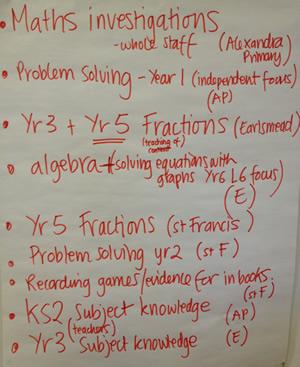 • Maths investigations
- whole staff (Alexandra Primary)
• Problem Solving - Year 1 (independent focus)
(AP)
• Yr 3 + Yr 5 Fractions (Earlsmead)
(teaching of) content
• algebra + solving equations with
graphs Yr6 L6 focus)
(E)
• Yr 5 Fractions (St Francis)
• Problem solving yr2 (St F)
• Recording games/evidence for in books.
(St F)
• KS2 subject knowledge (AP)
(teachers)
• Yr3 Subject knowledge (E)